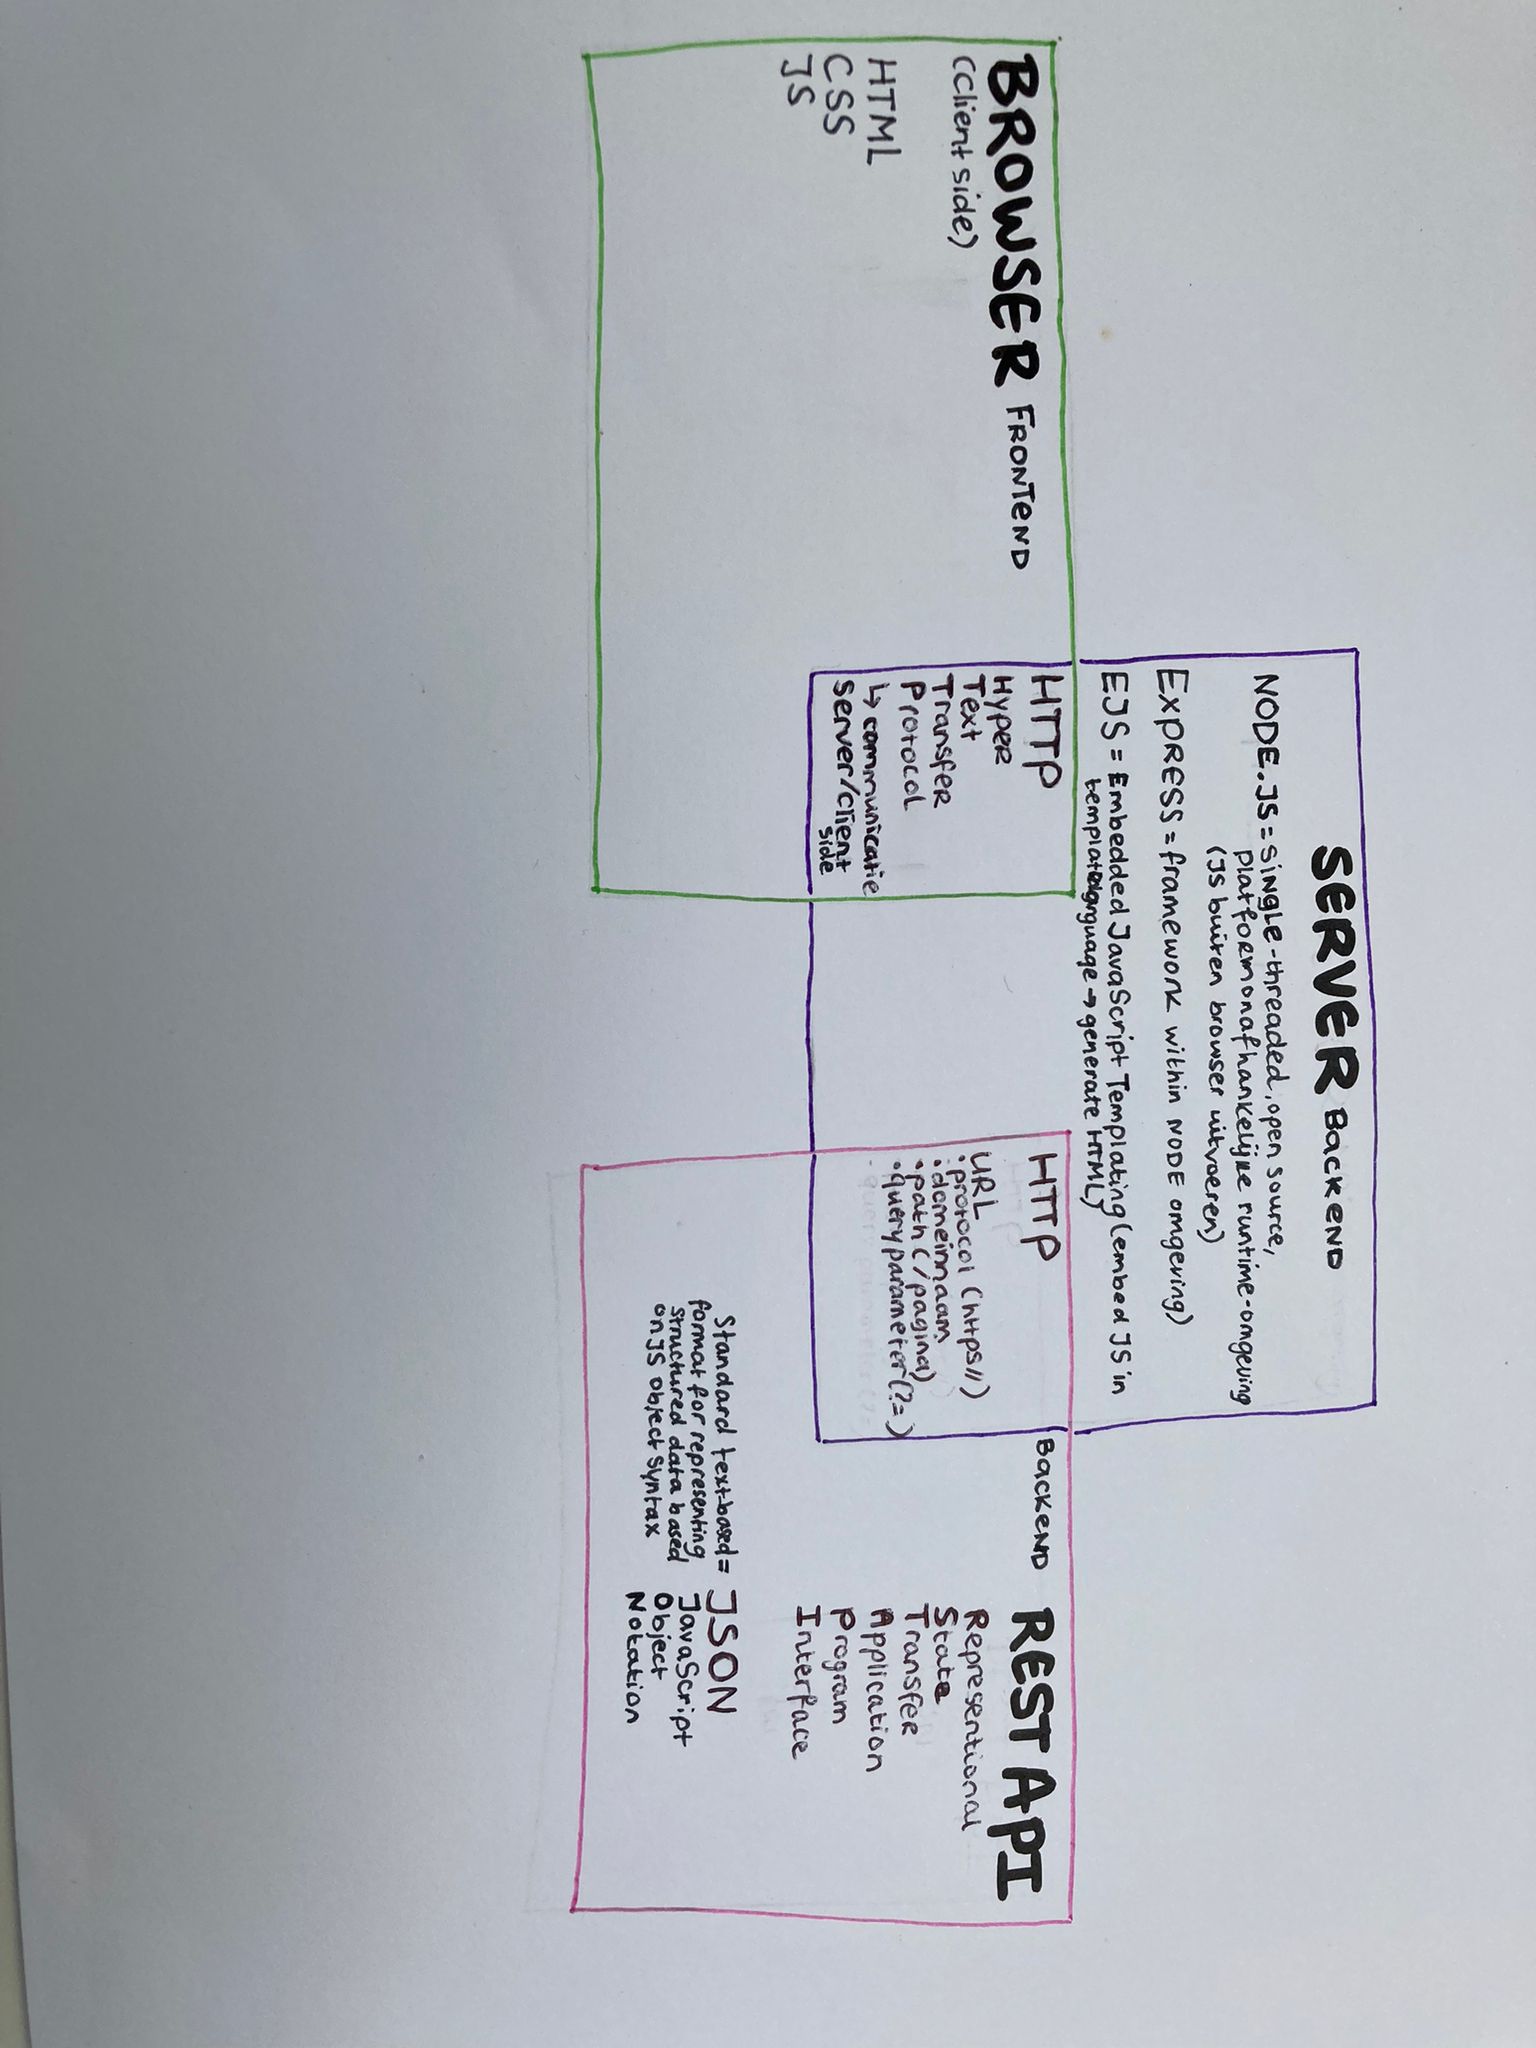 SERVER BackEND
NODE.JS = single-threaded, open source,
platformonafhankelijke runtime-omgeving
(JS buiten browser uitvoeren)
EXPRESS = framework within NODE omgeving)
EJS = Embedded JavaScript Templating (embed JS in
template language → generate HTML)
BROWSER FRONTEND
(Client side)
HTML
CSS
JS
HTTP
Hyper
Text
Transfer
Protocol
↳ communicatie
server/client
side
HTTP
URL
• protocol (https//)
• domeinnaam
• path (/pagina)
• queryparameter (?= )
BackEND REST API
Representional
State
Transfer
Application
Program
Interface
Standard text-based = JSON
format for representing
structured data based
on JS object syntax
JavaScript
Object
Notation